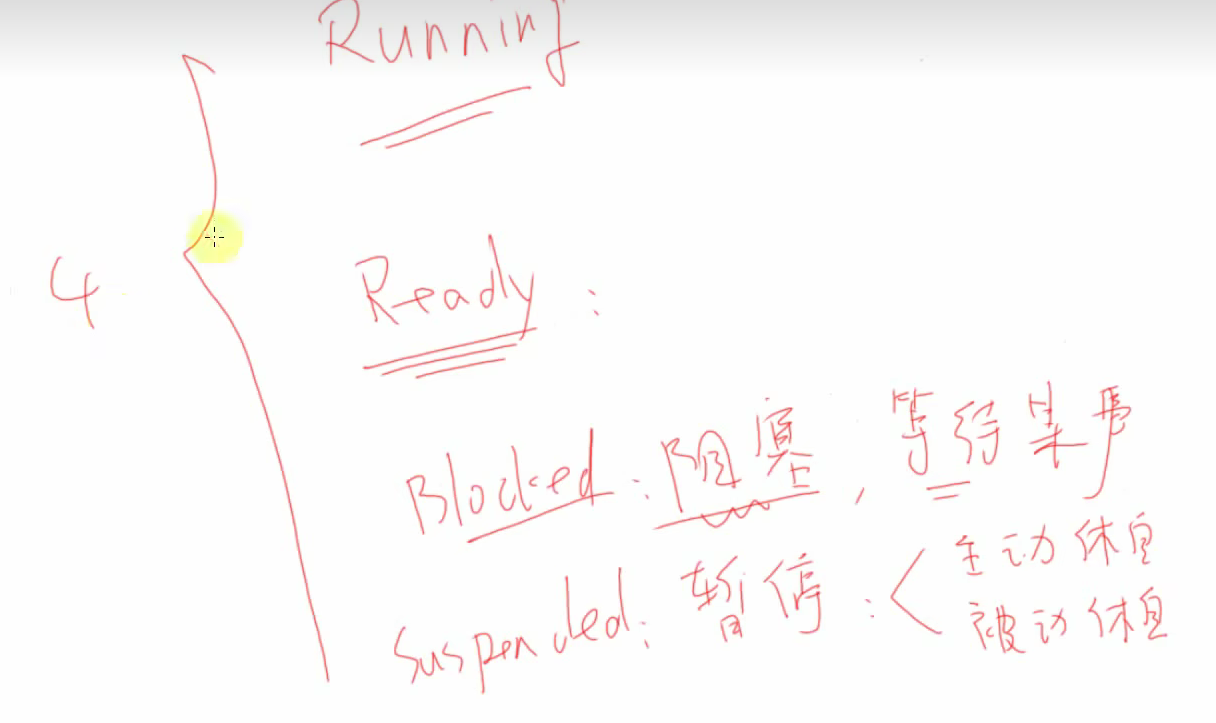 Running
4
Ready:
Blocked: 阻塞, 等待某事
suspended: 暂停: 主动休息
被动休息